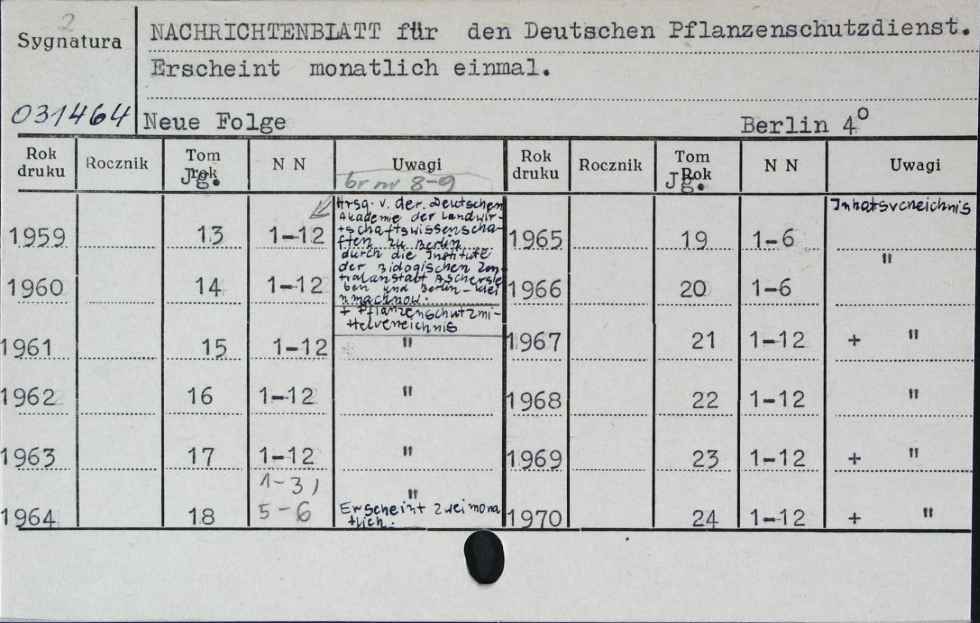 2
Sygnatura
031464
NACHRICHTENBLATT für den Deutschen Pflanzenschutzdienst.
Erscheint monatlich einmal.
Neue Folge Berlin 4°
Rok druku Rocznik Tom Rok Jg. N N Uwagi Rok druku Rocznik Tom Rok Jg. N N Uwagi
br nr 8-9
Hrsg. v. der. Deutschen
Akademie der Landwir-
tschaftswissenscha-
ften zu Berlin
durch die Institute
der Biologischen Zen-
tralanstalt Aschersle
ben und Berlin-Klei
nmachnow.
+ Pflanzenschutzmi-
ttelverzeichnis
Inhatsverzeichnis
1959 13 1-12 1965 19 1-6
1960 14 1-12 1966 20 1-6 "
1961 15 1-12 " 1967 21 1-12 + "
1962 16 1-12 " 1968 22 1-12 "
1963 17 1-12 " 1969 23 1-12 + "
1964 18 1-3, 5-6 " Erscheint zweimona tlich. 1970 24 1-12 + "